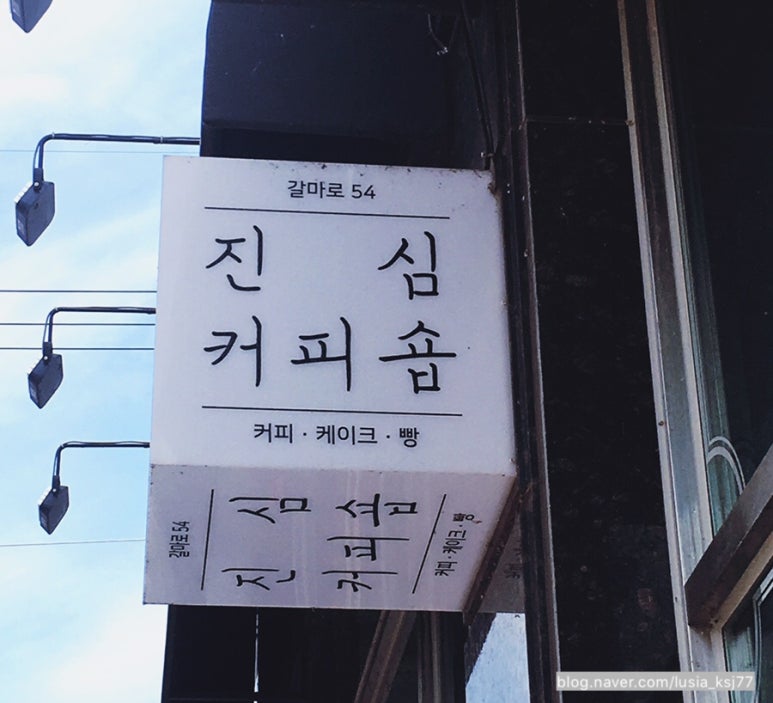 갈마로 54
진 심
커피숍
커피 · 케이크 · 빵
갈마로 54
진 심
커피숍
커피 · 케이크 · 빵
blog.naver.com/lusia_ksj77